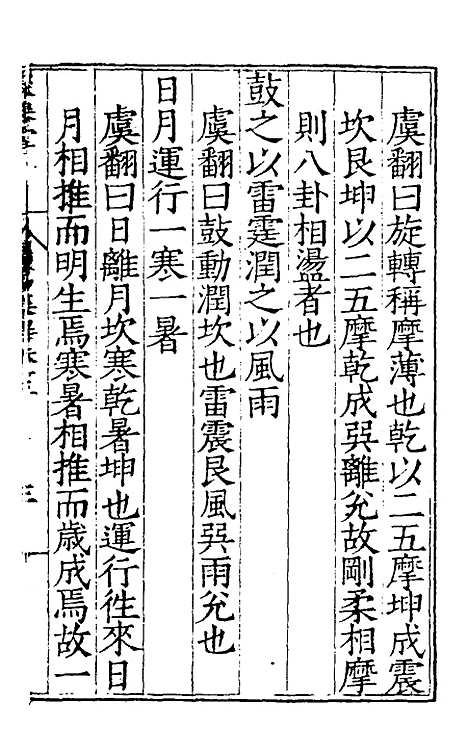 虞翻曰旋轉稱摩薄也乾以二五摩坤成震
坎艮坤以二五摩乾成巽離兊故剛柔相摩
則八卦相盪者也
鼓之以雷霆潤之以風雨
虞翻曰鼓動潤坎也雷震艮風巽雨兊也
日月運行一寒一暑
虞翻曰日離月坎寒乾暑坤也運行徃來日
月相推而明生焉寒暑相推而歳成焉故一
三